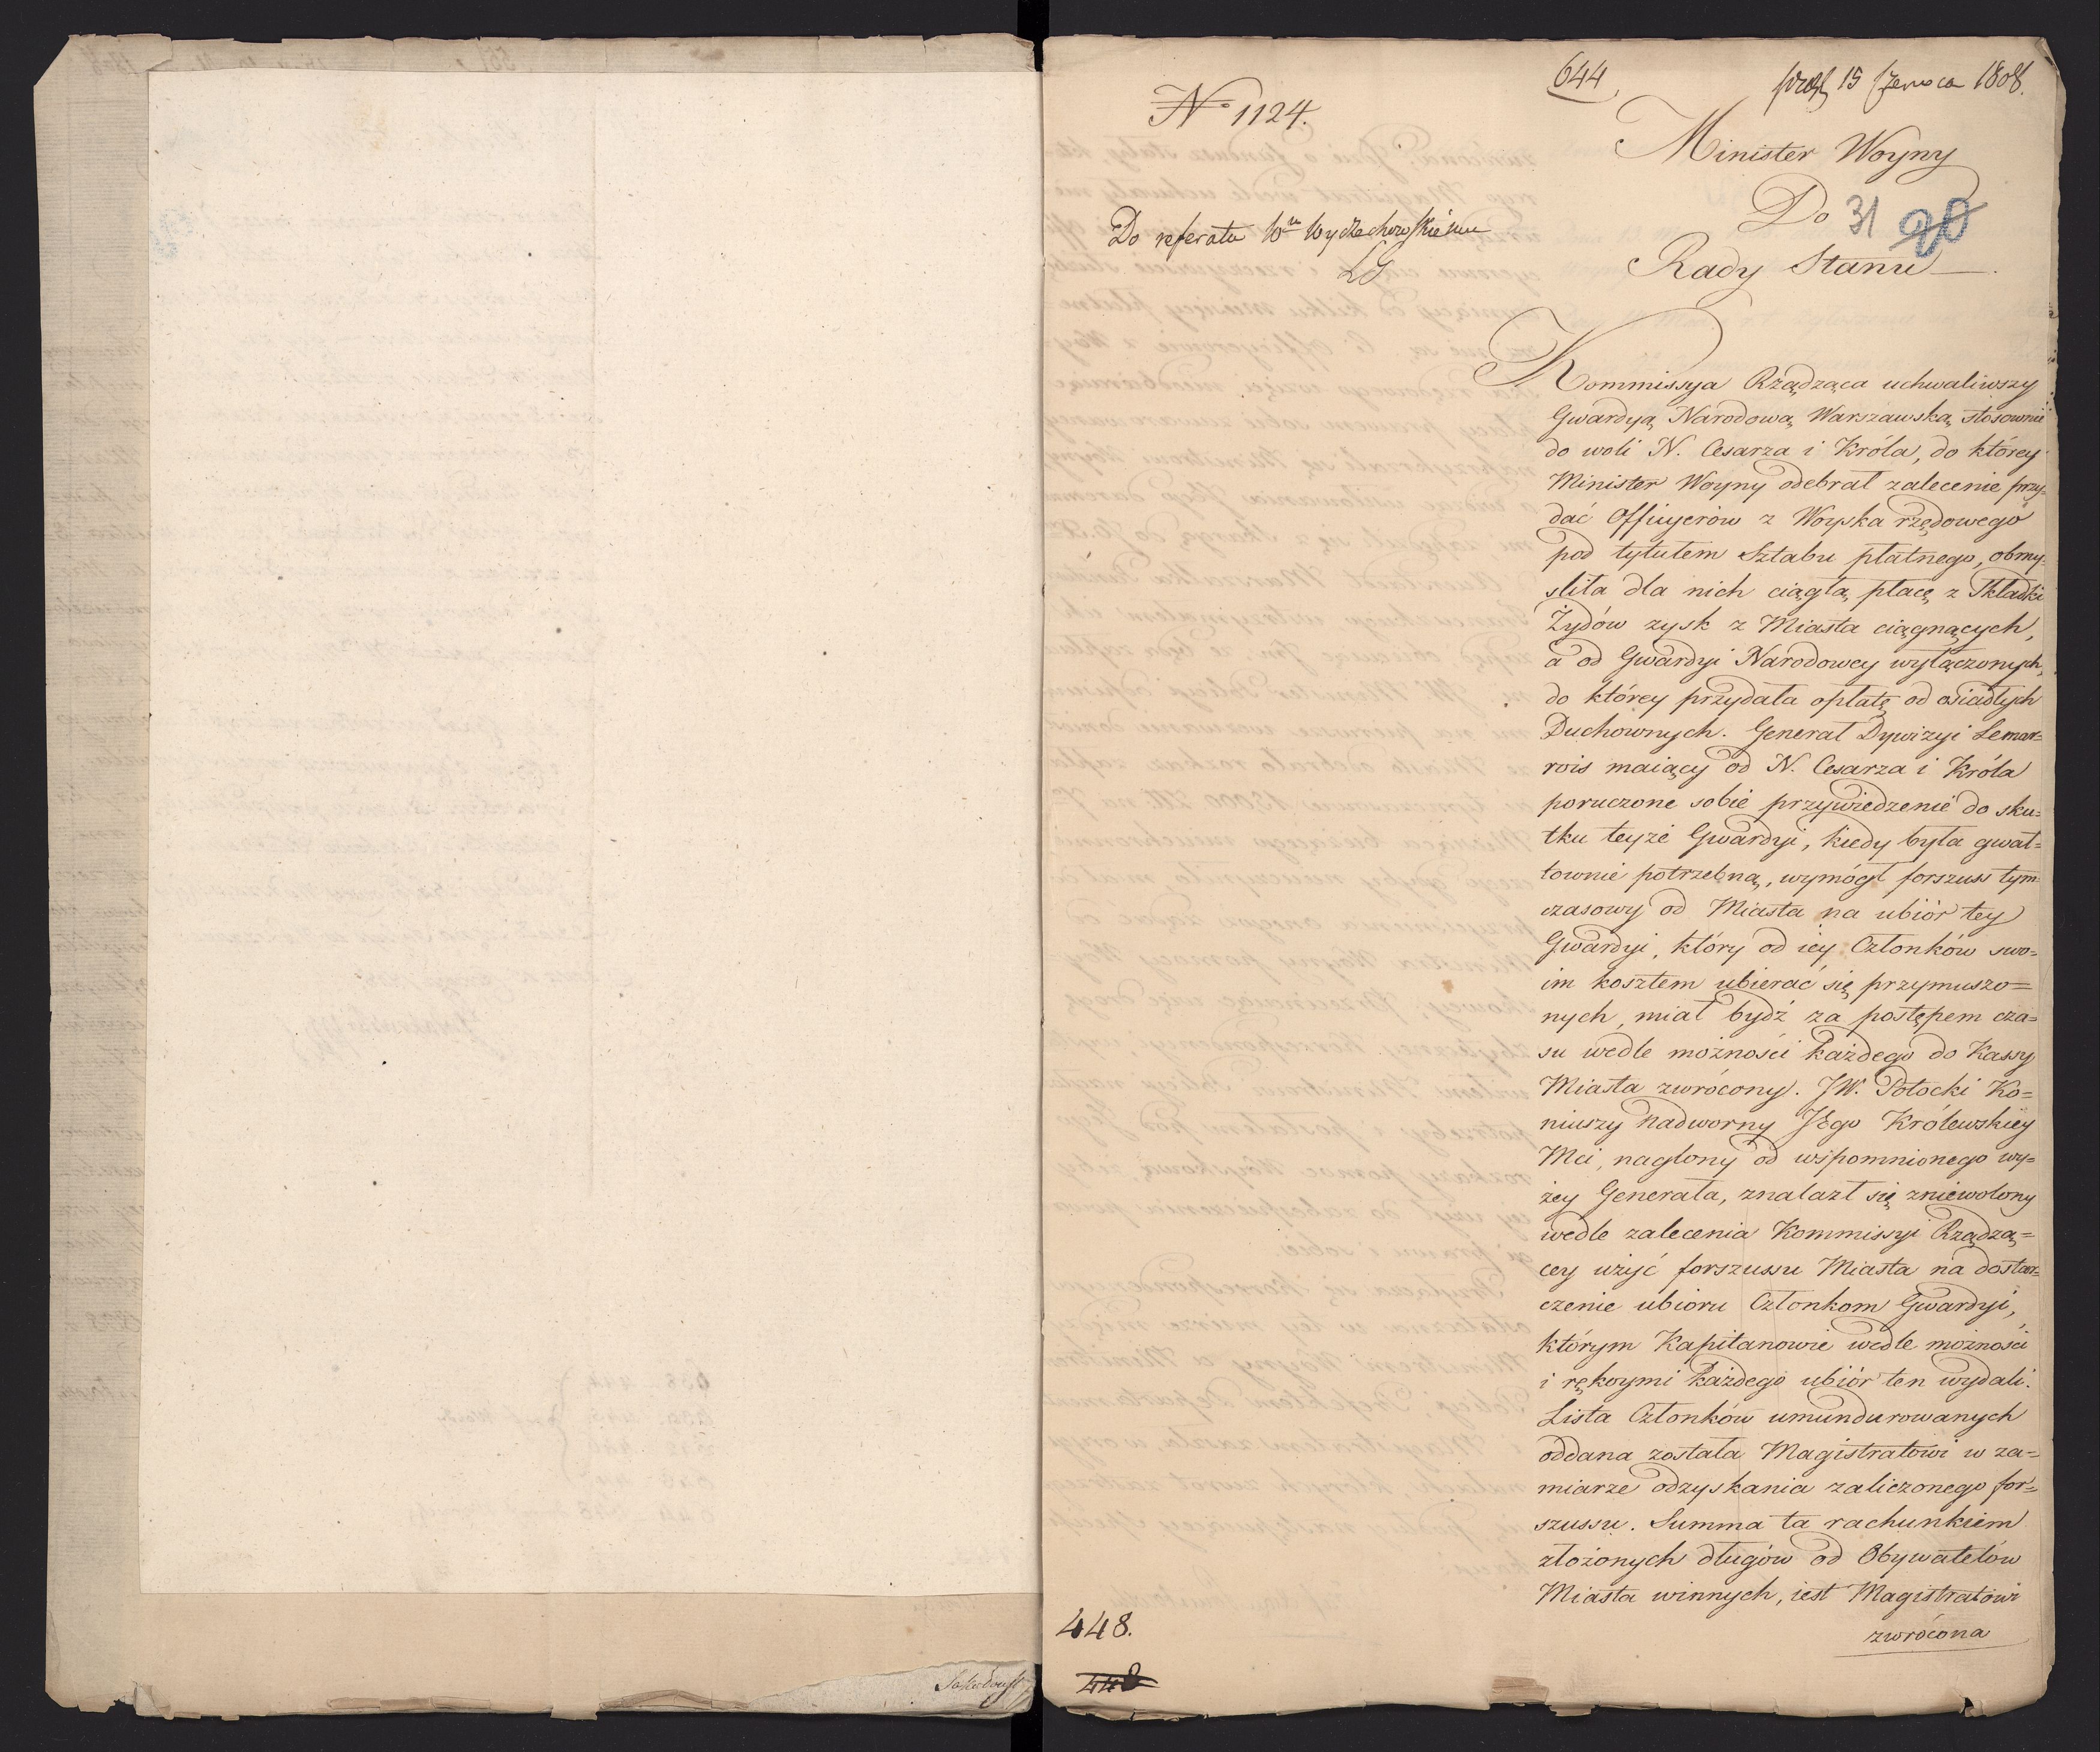 644
15 Czerwca 1808.
No 1124.
Minister Woyny
Do 31 20
Rady Stanu
Do referatu Wu Wyczechowskiemu
Kommissya Rządząca uchwaliwszy
Gwardyą Narodową Warszawską stosownie
do woli N. Cesarza i Króla, do którey
Minister Woyny odebrał zalecenie przy=
dać Officyerów z Woyska rzędowego
pod tytułem Sztabu płatnego, obmy=
sliła dla nich ciągłą płacę z Składki
Żydów zysk z Miasta ciągnących,
a od Gwardyi Narodowey wyłączonych,
do którey przydała opłatę od osiadłych
Duchownych. Generał Dywizyi Lemar=
rois maiący od N. Cesarza i Króla
poruczone sobie przywiedzenie do sku=
tku teyże Gwardyi, kiedy była gwał=
townie potrzebną, wymógł forszuss tym=
czasowy od Miasta na ubiór tey
Gwardyi, który od iey Członków swo=
im kosztem ubierać się przymuszo=
nych, miał bydź za postępem cza=
su wedle możności każdego do Kassy
Miasta zwrócony. JW. Potocki Ko=
niuszy Nadworny JEgo Królewskiey
Mci, naglony od wspomnionego wy=
żey Generała, znalazł się zniewolony
wedle zalecenia Kommissyi Rządzą=
cey użyć forszussu Miasta na dostar=
czenie ubioru Członkom Gwardyi,
którym Kapitanowie wedle możności
i rękoymi każdego ubiór ten wydali.
Lista Członków umundurowanych
oddana została Magistratowi w za=
miarze odzyskania zaliczonego for=
szussu. Summa ta rachunkiem
złożonych długów od Obywatelów
Miasta winnych, iest Magistratowi
zwrócona
448.
448